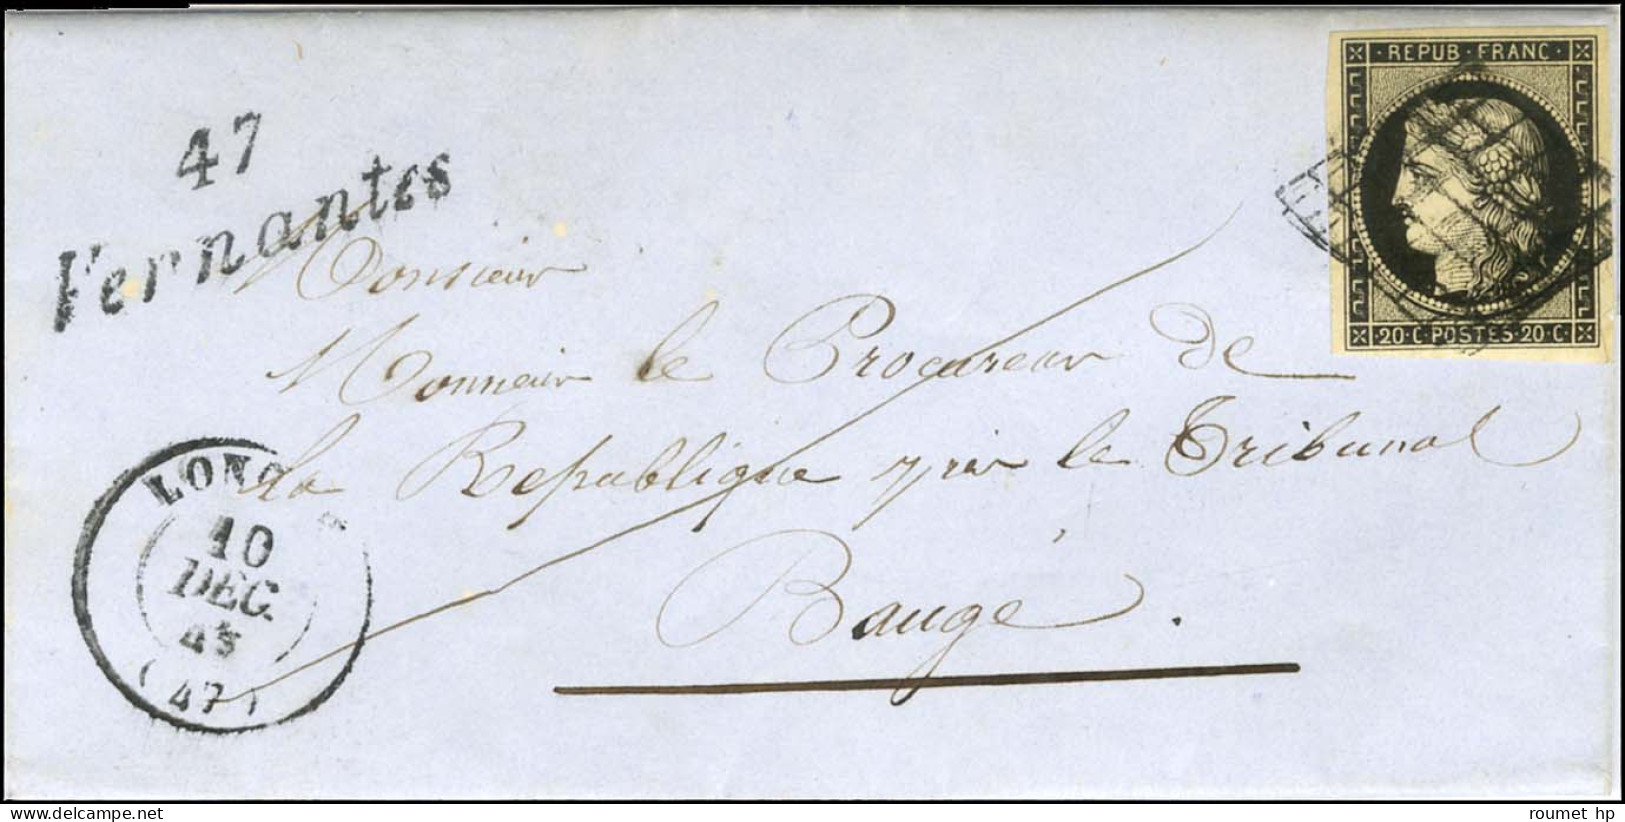 47
Fernantes
REPUB · FRANC ·
· 20 · C · POSTES · 20 · C ·
Monsieur
Monsieur le Procureur de
la République près le Tribunal
Baugé.
LONG
10
DEC.
(47)
roumet hp